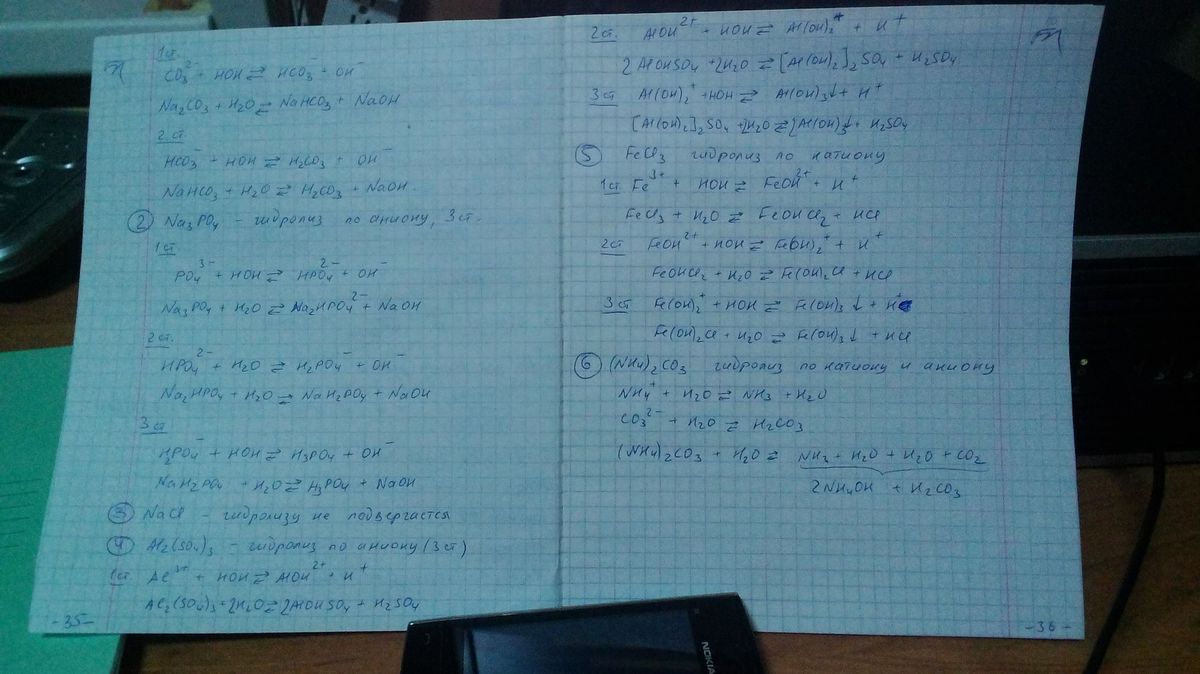 1ст.
CO₃²⁻ + HOH ⇄ HCO₃⁻ + OH⁻
Na₂CO₃ + H₂O ⇄ NaHCO₃ + NaOH
2 ст
HCO₃⁻ + HOH ⇄ H₂CO₃ + OH⁻
NaHCO₃ + H₂O ⇄ H₂CO₃ + NaOH.
② Na₃PO₄ – гидролиз по аниону, 3ст.
1ст
PO₄³⁻ + HOH ⇄ HPO₄²⁻ + OH⁻
Na₃PO₄ + H₂O ⇄ Na₂HPO₄²⁻ + NaOH
2ст.
HPO₄²⁻ + H₂O ⇄ H₂PO₄⁻ + OH⁻
Na₂HPO₄ + H₂O ⇄ NaH₂PO₄ + NaOH
3 ст
H₂PO₄⁻ + HOH ⇄ H₃PO₄ + OH⁻
NaH₂PO₄ + H₂O ⇄ H₃PO₄ + NaOH
③ NaCl – гидролизу не подвергается
④ Al₂(SO₄)₃ – гидролиз по аниону (3 ст)
1ст. Al³⁺ + HOH ⇄ AlOH²⁺ + H⁺
Al₂(SO₄)₃ + 2H₂O ⇄ 2AlOHSO₄ + H₂SO₄
-35-
2ст. AlOH²⁺ + HOH ⇄ Al(OH)₂⁺ + H⁺
2AlOHSO₄ + 2H₂O ⇄ [Al(OH)₂]₂SO₄ + H₂SO₄
3ст Al(OH)₂⁺ + HOH ⇄ Al(OH)₃↓ + H⁺
[Al(OH)₂]₂SO₄ + 2H₂O ⇄ 2Al(OH)₃↓ + H₂SO₄
⑤ FeCl₃ гидролиз по катиону
1ст Fe³⁺ + HOH ⇄ FeOH²⁺ + H⁺
FeCl₃ + H₂O ⇄ FeOHCl₂ + HCl
2ст FeOH²⁺ + HOH ⇄ Fe(OH)₂⁺ + H⁺
FeOHCl₂ + H₂O ⇄ Fe(OH)₂Cl + HCl
3 ст Fe(OH)₂⁺ + HOH ⇄ Fe(OH)₃↓ + H⁺
Fe(OH)₂Cl + H₂O ⇄ Fe(OH)₃↓ + HCl
⑥ (NH₄)₂CO₃ гидролиз по катиону и аниону
NH₄⁺ + H₂O ⇄ NH₃ + H₂O
CO₃²⁻ + H₂O ⇄ H₂CO₃
(NH₄)₂CO₃ + H₂O ⇄ NH₃ + H₂O + H₂O + CO₂
2NH₄OH + H₂CO₃
-36-
NOKIA